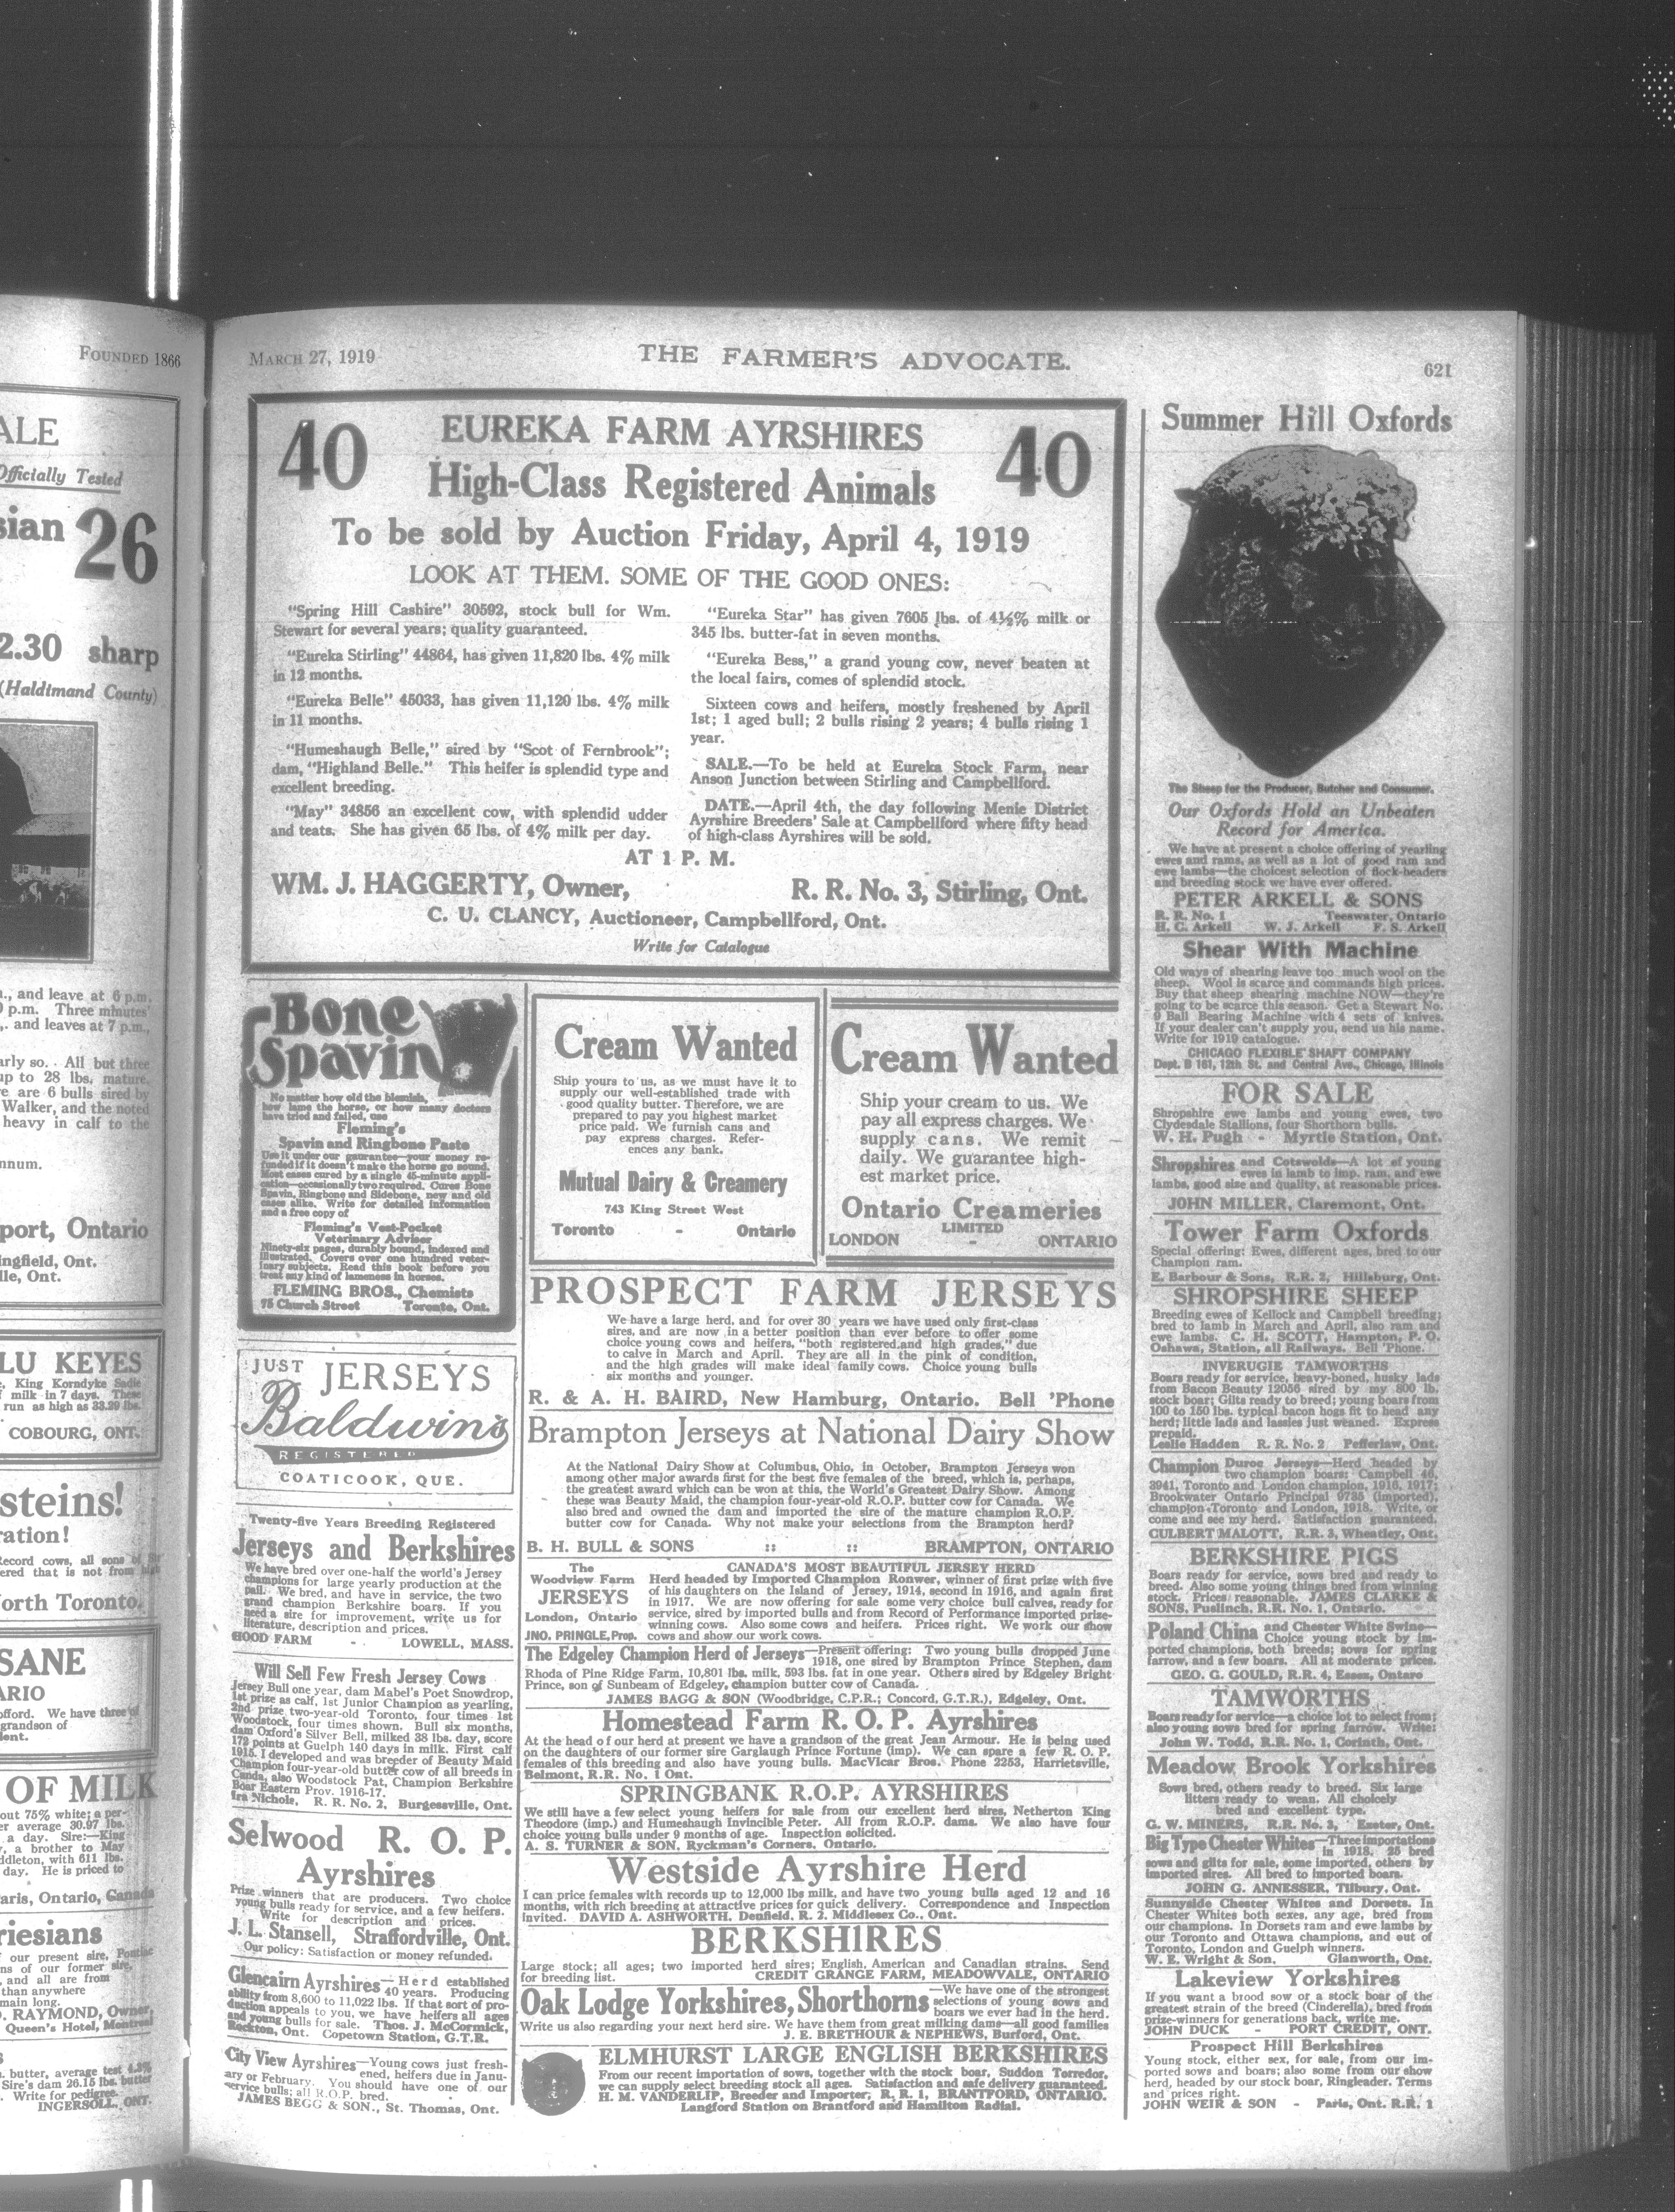 FOUNDED 1866
ALE
Officially Tested
sian 26
2.30 sharp
(Haldimand County)
., and leave at 6 p.m.
p.m. Three minutes
,. and leaves at 7 p.m.,
arly so. All but three
up to 28 lbs. mature,
re are 6 bulls sired by
Walker, and the noted
heavy in calf to the
nnum.
port, Ontario
ingfield, Ont.
lle, Ont.
LU KEYES
King Korndyke Sadie
milk in 7 days. These
run as high as 33.29 lbs.
COBOURG, ONT.
steins!
ration!
North Toronto.
SANE
ARIO
offord. We have three of
grandson of
OF MILK
out 75% white; a per-
er average 30.97 lbs.
a day. Sire:—King
, a brother to May
ddleton, with 611 lbs.
day. He is priced to
Paris, Ontario, Canada
riesians
our present sire, Pontiac
ns of our former sire,
and all are from
than anywhere
main long.
RAYMOND, Owner,
Queen's Hotel, Montreal
butter, average test 4.3%
Sire's dam 26.15 lbs. butter
Write for pedigree.
INGERSOLL, ONT.
MARCH 27, 1919
THE FARMER'S ADVOCATE.
621
40 EUREKA FARM AYRSHIRES 40
High-Class Registered Animals
To be sold by Auction Friday, April 4, 1919
LOOK AT THEM. SOME OF THE GOOD ONES:
"Spring Hill Cashire" 30592, stock bull for Wm.
Stewart for several years; quality guaranteed.
"Eureka Stirling" 44864, has given 11,820 lbs. 4% milk
in 12 months.
"Eureka Belle" 45033, has given 11,120 lbs. 4% milk
in 11 months.
"Humeshaugh Belle," sired by "Scot of Fernbrook";
dam, "Highland Belle." This heifer is splendid type and
excellent breeding.
"May" 34856 an excellent cow, with splendid udder
and teats. She has given 65 lbs. of 4% milk per day.
"Eureka Star" has given 7605 lbs. of 4½% milk or
345 lbs. butter-fat in seven months.
"Eureka Bess," a grand young cow, never beaten at
the local fairs, comes of splendid stock.
Sixteen cows and heifers, mostly freshened by April
1st; 1 aged bull; 2 bulls rising 2 years; 4 bulls rising 1
year.
SALE.—To be held at Eureka Stock Farm, near
Anson Junction between Stirling and Campbellford.
DATE.—April 4th, the day following Menie District
Ayrshire Breeders' Sale at Campbellford where fifty head
of high-class Ayrshires will be sold.
AT 1 P. M.
WM. J. HAGGERTY, Owner, R. R. No. 3, Stirling, Ont.
C. U. CLANCY, Auctioneer, Campbellford, Ont.
Write for Catalogue
Bone
Spavin
No matter how old the blemish,
how lame the horse, or how many doctors
have tried and failed, use
Fleming's
Spavin and Ringbone Paste
Use it under our guarantee—your money re-
funded if it doesn't make the horse go sound.
Most cases cured by a single 45-minute appli-
cation—occasionally two required. Cures Bone
Spavin, Ringbone and Sidebone, new and old
cases alike. Write for detailed information
and a free copy of
Fleming's Vest-Pocket
Veterinary Adviser
Ninety-six pages, durably bound, indexed and
illustrated. Covers over one hundred veter-
inary subjects. Read this book before you
treat any kind of lameness in horses.
FLEMING BROS., Chemists
75 Church Street Toronto, Ont.
JUST JERSEYS
Baldwin's
REGISTERED
COATICOOK, QUE.
Twenty-five Years Breeding Registered
Jerseys and Berkshires
We have bred over one-half the world's Jersey
champions for large yearly production at the
pail. We bred, and have in service, the two
grand champion Berkshire boars. If you
need a sire for improvement, write us for
literature, description and prices.
HOOD FARM - LOWELL, MASS.
Will Sell Few Fresh Jersey Cows
Jersey Bull one year, dam Mabel's Poet Snowdrop,
1st prize as calf, 1st Junior Champion as yearling,
2nd prize two-year-old Toronto, four times 1st
Woodstock, four times shown. Bull six months,
dam Oxford's Silver Bell, milked 38 lbs. day, score
172 points at Guelph 140 days in milk. First calf
1915. I developed and was breeder of Beauty Maid
Champion four-year-old butter cow of all breeds in
Canda, also Woodstock Pat, Champion Berkshire
Boar Eastern Prov. 1916-17.
Ira Nichols, R. R. No. 2, Burgessville, Ont.
Selwood R. O. P.
Ayrshires
Prize winners that are producers. Two choice
young bulls ready for service, and a few heifers.
Write for description and prices.
J. L. Stansell, Straffordville, Ont.
Our policy: Satisfaction or money refunded.
Glencairn Ayrshires—Herd established
40 years. Producing
ability from 8,600 to 11,022 lbs. If that sort of pro-
duction appeals to you, we have heifers all ages
and young bulls for sale. Thos. J. McCormick,
Rockton, Ont. Copetown Station, G.T.R.
City View Ayrshires—Young cows just fresh-
ened, heifers due in Janu-
ary or February. You should have one of our
service bulls; all R.O.P. bred.
JAMES BEGG & SON., St. Thomas, Ont.
Cream Wanted
Ship yours to us, as we must have it to
supply our well-established trade with
good quality butter. Therefore, we are
prepared to pay you highest market
price paid. We furnish cans and
pay express charges. Refer-
ences any bank.
Mutual Dairy & Creamery
743 King Street West
Toronto - Ontario
Cream Wanted
Ship your cream to us. We
pay all express charges. We
supply cans. We remit
daily. We guarantee high-
est market price.
Ontario Creameries
LIMITED
LONDON - ONTARIO
PROSPECT FARM JERSEYS
We have a large herd, and for over 30 years we have used only first-class
sires, and are now in a better position than ever before to offer some
choice young cows and heifers, "both registered and high grades," due
to calve in March and April. They are all in the pink of condition,
and the high grades will make ideal family cows. Choice young bulls
six months and younger.
R. & A. H. BAIRD, New Hamburg, Ontario. Bell 'Phone
Brampton Jerseys at National Dairy Show
At the National Dairy Show at Columbus, Ohio, in October, Brampton Jerseys won
among other major awards first for the best five females of the breed, which is, perhaps,
the greatest award which can be won at this, the World's Greatest Dairy Show. Among
these was Beauty Maid, the champion four-year-old R.O.P. butter cow for Canada. We
also bred and owned the dam and imported the sire of the mature champion R.O.P.
butter cow for Canada. Why not make your selections from the Brampton herd?
B. H. BULL & SONS :: :: BRAMPTON, ONTARIO
The
Woodview Farm
JERSEYS
London, Ontario
JNO. PRINGLE, Prop.
CANADA'S MOST BEAUTIFUL JERSEY HERD
Herd headed by Imported Champion Ronwer, winner of first prize with five
of his daughters on the Island of Jersey, 1914, second in 1916, and again first
in 1917. We are now offering for sale some very choice bull calves, ready for
service, sired by imported bulls and from Record of Performance imported prize-
winning cows. Also some cows and heifers. Prices right. We work our show
cows and show our work cows.
The Edgeley Champion Herd of Jerseys—Present offering: Two young bulls dropped June
1918, one sired by Brampton Prince Stephen, dam
Rhoda of Pine Ridge Farm, 10,801 lbs. milk, 593 lbs. fat in one year. Others sired by Edgeley Bright
Prince, son of Sunbeam of Edgeley, champion butter cow of Canada.
JAMES BAGG & SON (Woodbridge, C.P.R.; Concord, G.T.R.), Edgeley, Ont.
Homestead Farm R. O. P. Ayrshires
At the head of our herd at present we have a grandson of the great Jean Armour. He is being used
on the daughters of our former sire Garglaugh Prince Fortune (imp). We can spare a few R. O. P.
females of this breeding and also have young bulls. MacVicar Bros. Phone 2253, Harrietsville,
Belmont, R.R. No. 1 Ont.
SPRINGBANK R.O.P. AYRSHIRES
We still have a few select young heifers for sale from our excellent herd sires, Netherton King
Theodore (imp.) and Humeshaugh Invincible Peter. All from R.O.P. dams. We also have four
choice young bulls under 9 months of age. Inspection solicited.
A. S. TURNER & SON, Ryckman's Corners, Ontario.
Westside Ayrshire Herd
I can price females with records up to 12,000 lbs milk, and have two young bulls aged 12 and 16
months, with rich breeding at attractive prices for quick delivery. Correspondence and Inspection
invited. DAVID A. ASHWORTH, Denfield, R. 2, Middlesex Co., Ont.
BERKSHIRES
Large stock; all ages; two imported herd sires; English, American and Canadian strains. Send
for breeding list. CREDIT GRANGE FARM, MEADOWVALE, ONTARIO
Oak Lodge Yorkshires, Shorthorns—We have one of the strongest
selections of young sows and
boars we ever had in the herd.
Write us also regarding your next herd sire. We have them from great milking dams—all good families
J. E. BRETHOUR & NEPHEWS, Burford, Ont.
ELMHURST LARGE ENGLISH BERKSHIRES
From our recent importation of sows, together with the stock boar, Suddon Torredor,
we can supply select breeding stock all ages. Satisfaction and safe delivery guaranteed.
H. M. VANDERLIP, Breeder and Importer, R. R. 1, BRANTFORD, ONTARIO.
Langford Station on Brantford and Hamilton Radial.
Summer Hill Oxfords
The Sheep for the Producer, Butcher and Consumer.
Our Oxfords Hold an Unbeaten
Record for America.
We have at present a choice offering of yearling
ewes and rams, as well as a lot of good ram and
ewe lambs—the choicest selection of flock-headers
and breeding stock we have ever offered.
PETER ARKELL & SONS
R. R. No. 1 Teeswater, Ontario
H. C. Arkell W. J. Arkell F. S. Arkell
Shear With Machine
Old ways of shearing leave too much wool on the
sheep. Wool is scarce and commands high prices.
Buy that sheep shearing machine NOW—they're
going to be scarce this season. Get a Stewart No.
9 Ball Bearing Machine with 4 sets of knives.
If your dealer can't supply you, send us his name.
Write for 1919 catalogue.
CHICAGO FLEXIBLE SHAFT COMPANY
Dept. B 161, 12th St. and Central Ave., Chicago, Illinois
FOR SALE
Shropshire ewe lambs and young ewes, two
Clydesdale Stallions, four Shorthorn bulls.
W. H. Pugh - Myrtle Station, Ont.
Shropshires and Cotswolds—A lot of young
ewes in lamb to imp. ram, and ewe
lambs, good size and quality, at reasonable prices.
JOHN MILLER, Claremont, Ont.
Tower Farm Oxfords
Special offering: Ewes, different ages, bred to our
Champion ram.
E. Barbour & Sons, R.R. 2, Hillsburg, Ont.
SHROPSHIRE SHEEP
Breeding ewes of Kellock and Campbell breeding;
bred to lamb in March and April, also ram and
ewe lambs. C. H. SCOTT, Hampton, P. O.
Oshawa, Station, all Railways. Bell 'Phone.
INVERUGIE TAMWORTHS
Boars ready for service, heavy-boned, husky lads
from Bacon Beauty 12056 sired by my 800 lb.
stock boar; Gilts ready to breed; young boars from
100 to 150 lbs. typical bacon hogs fit to head any
herd; little lads and lassies just weaned. Express
prepaid.
Leslie Hadden R. R. No. 2 Pefferlaw, Ont.
Champion Duroc Jerseys—Herd headed by
two champion boars: Campbell 46,
3941, Toronto and London champion, 1916, 1917;
Brookwater Ontario Principal 9735 (imported),
champion Toronto and London, 1918. Write, or
come and see my herd. Satisfaction guaranteed.
CULBERT MALOTT, R.R. 3, Wheatley, Ont.
BERKSHIRE PIGS
Boars ready for service, sows bred and ready to
breed. Also some young things bred from winning
stock. Prices reasonable. JAMES CLARKE &
SONS, Puslinch, R.R. No. 1, Ontario.
Poland China and Chester White Swine—
Choice young stock by im-
ported champions, both breeds; sows for spring
farrow, and a few boars. All at moderate prices.
GEO. G. GOULD, R.R. 4, Essex, Ontaro
TAMWORTHS
Boars ready for service—a choice lot to select from;
also young sows bred for spring farrow. Write:
John W. Todd, R.R. No. 1, Corinth, Ont.
Meadow Brook Yorkshires
Sows bred, others ready to breed. Six large
litters ready to wean. All choicely
bred and excellent type.
G. W. MINERS, R.R. No. 3, Exeter, Ont.
Big Type Chester Whites—Three importations
in 1918. 25 bred
sows and gilts for sale, some imported, others by
imported sires. All bred to imported boars.
JOHN G. ANNESSER, Tilbury, Ont.
Sunnyside Chester Whites and Dorsets. In
Chester Whites both sexes, any age, bred from
our champions. In Dorsets ram and ewe lambs by
our Toronto and Ottawa champions, and out of
Toronto, London and Guelph winners.
W. E. Wright & Son, Glanworth, Ont.
Lakeview Yorkshires
If you want a brood sow or a stock boar of the
greatest strain of the breed (Cinderella), bred from
prize-winners for generations back, write me.
JOHN DUCK - PORT CREDIT, ONT.
Prospect Hill Berkshires
Young stock, either sex, for sale, from our im-
ported sows and boars; also some from our show
herd, headed by our stock boar, Ringleader. Terms
and prices right.
JOHN WEIR & SON - Paris, Ont. R.R. 1